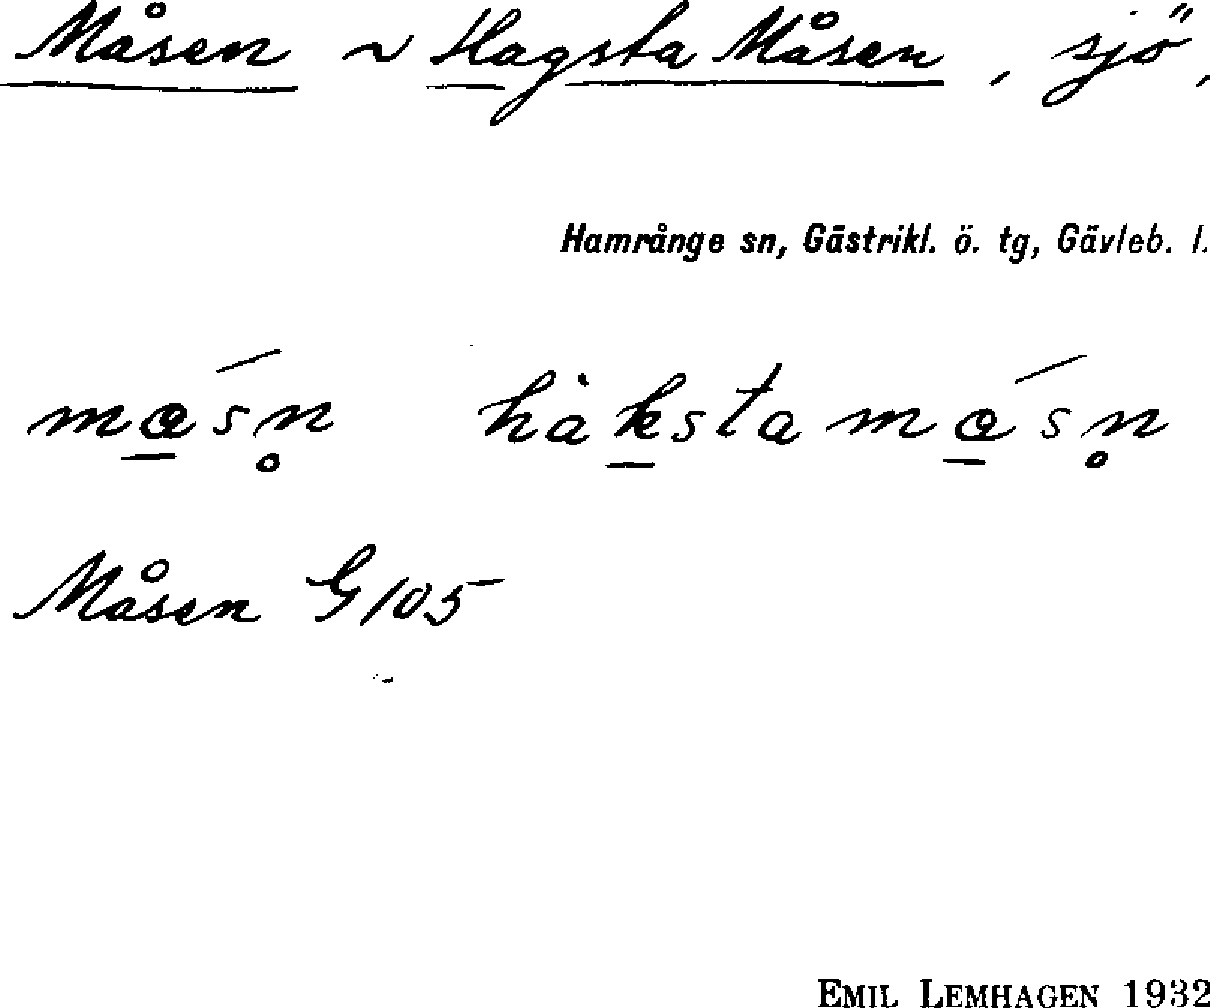 Måsen ~ Hagsta Måsen, sjö,
Hamrånge sn, Gästrikl. ö. tg, Gävleb. l.
mɷ̲́sn̥ hàk̲stamɷ̲́sn̥
Måsen G105
EMIL LEMHAGEN 1932